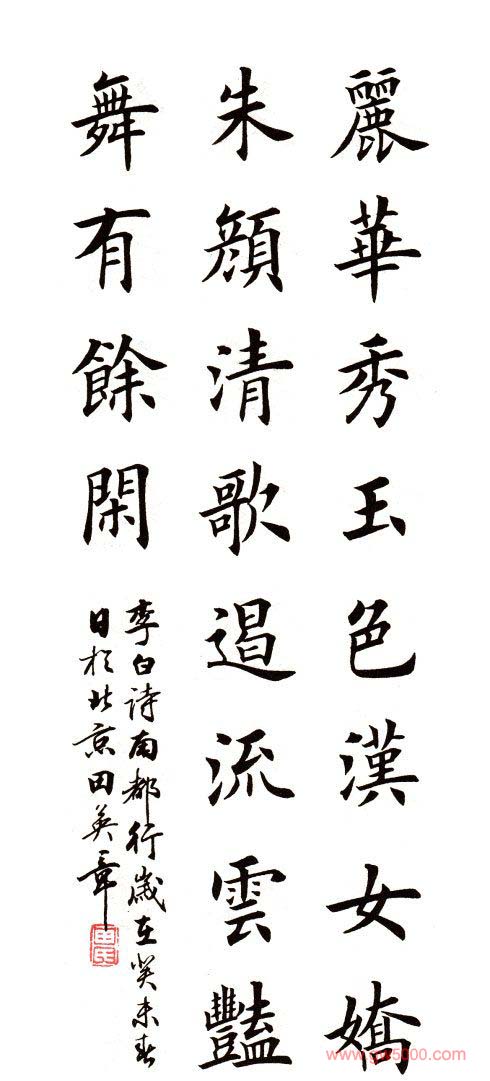 麗華秀玉色漢女嬌
朱顏清歌遏流雲豔
舞有餘閑
李白诗南都行歲在癸未春
日於北京田英章